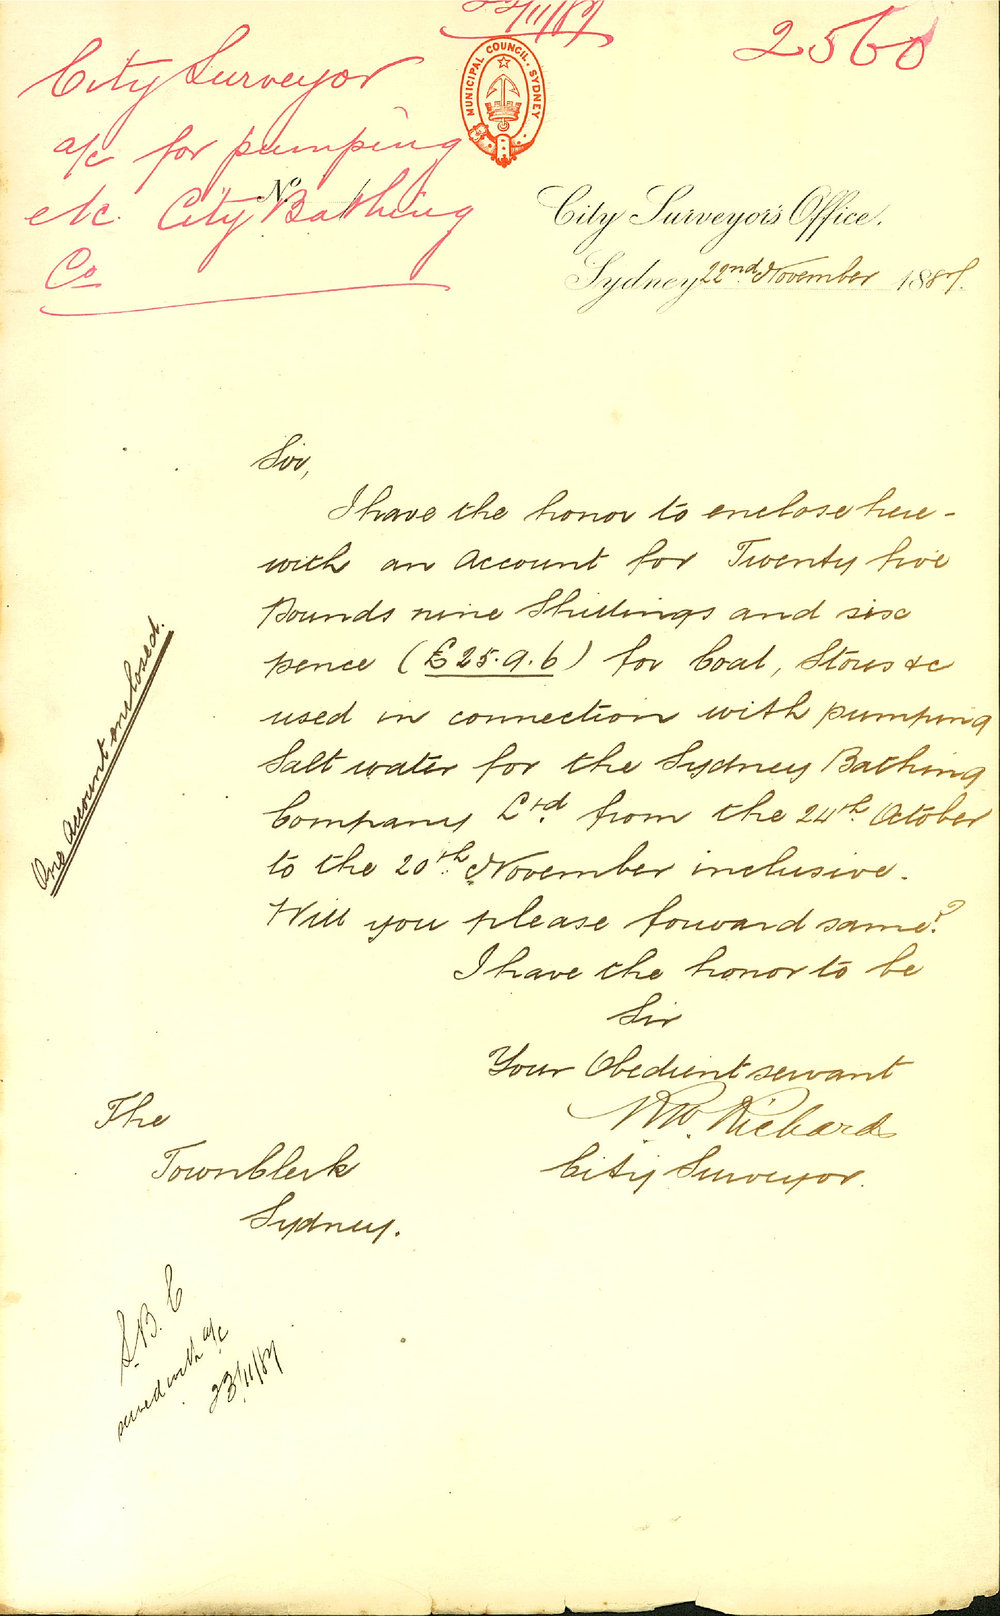 22/11/89
2560
City Surveyor
a/c for pumping
etc. City Bathing
Co
MUNICIPAL COUNCIL. SYDNEY
No
City Surveyor's Office.
Sydney 22nd November 1889.
Sir,
I have the honor to enclose here-
with an account for Twenty five
Pounds nine Shillings and six
pence (£25.9.6) for Coal, Stores &c
used in connection with pumping
Salt water for the Sydney Bathing
Company Ltd. from the 24th. October
to the 20th. November inclusive.
Will you please forward same?
I have the honor to be
Sir
Your Obedient servant
Richards
City Surveyor.
One account enclosed.
The
Town Clerk
Sydney.
S.B.C
served with a/c
23/11/89